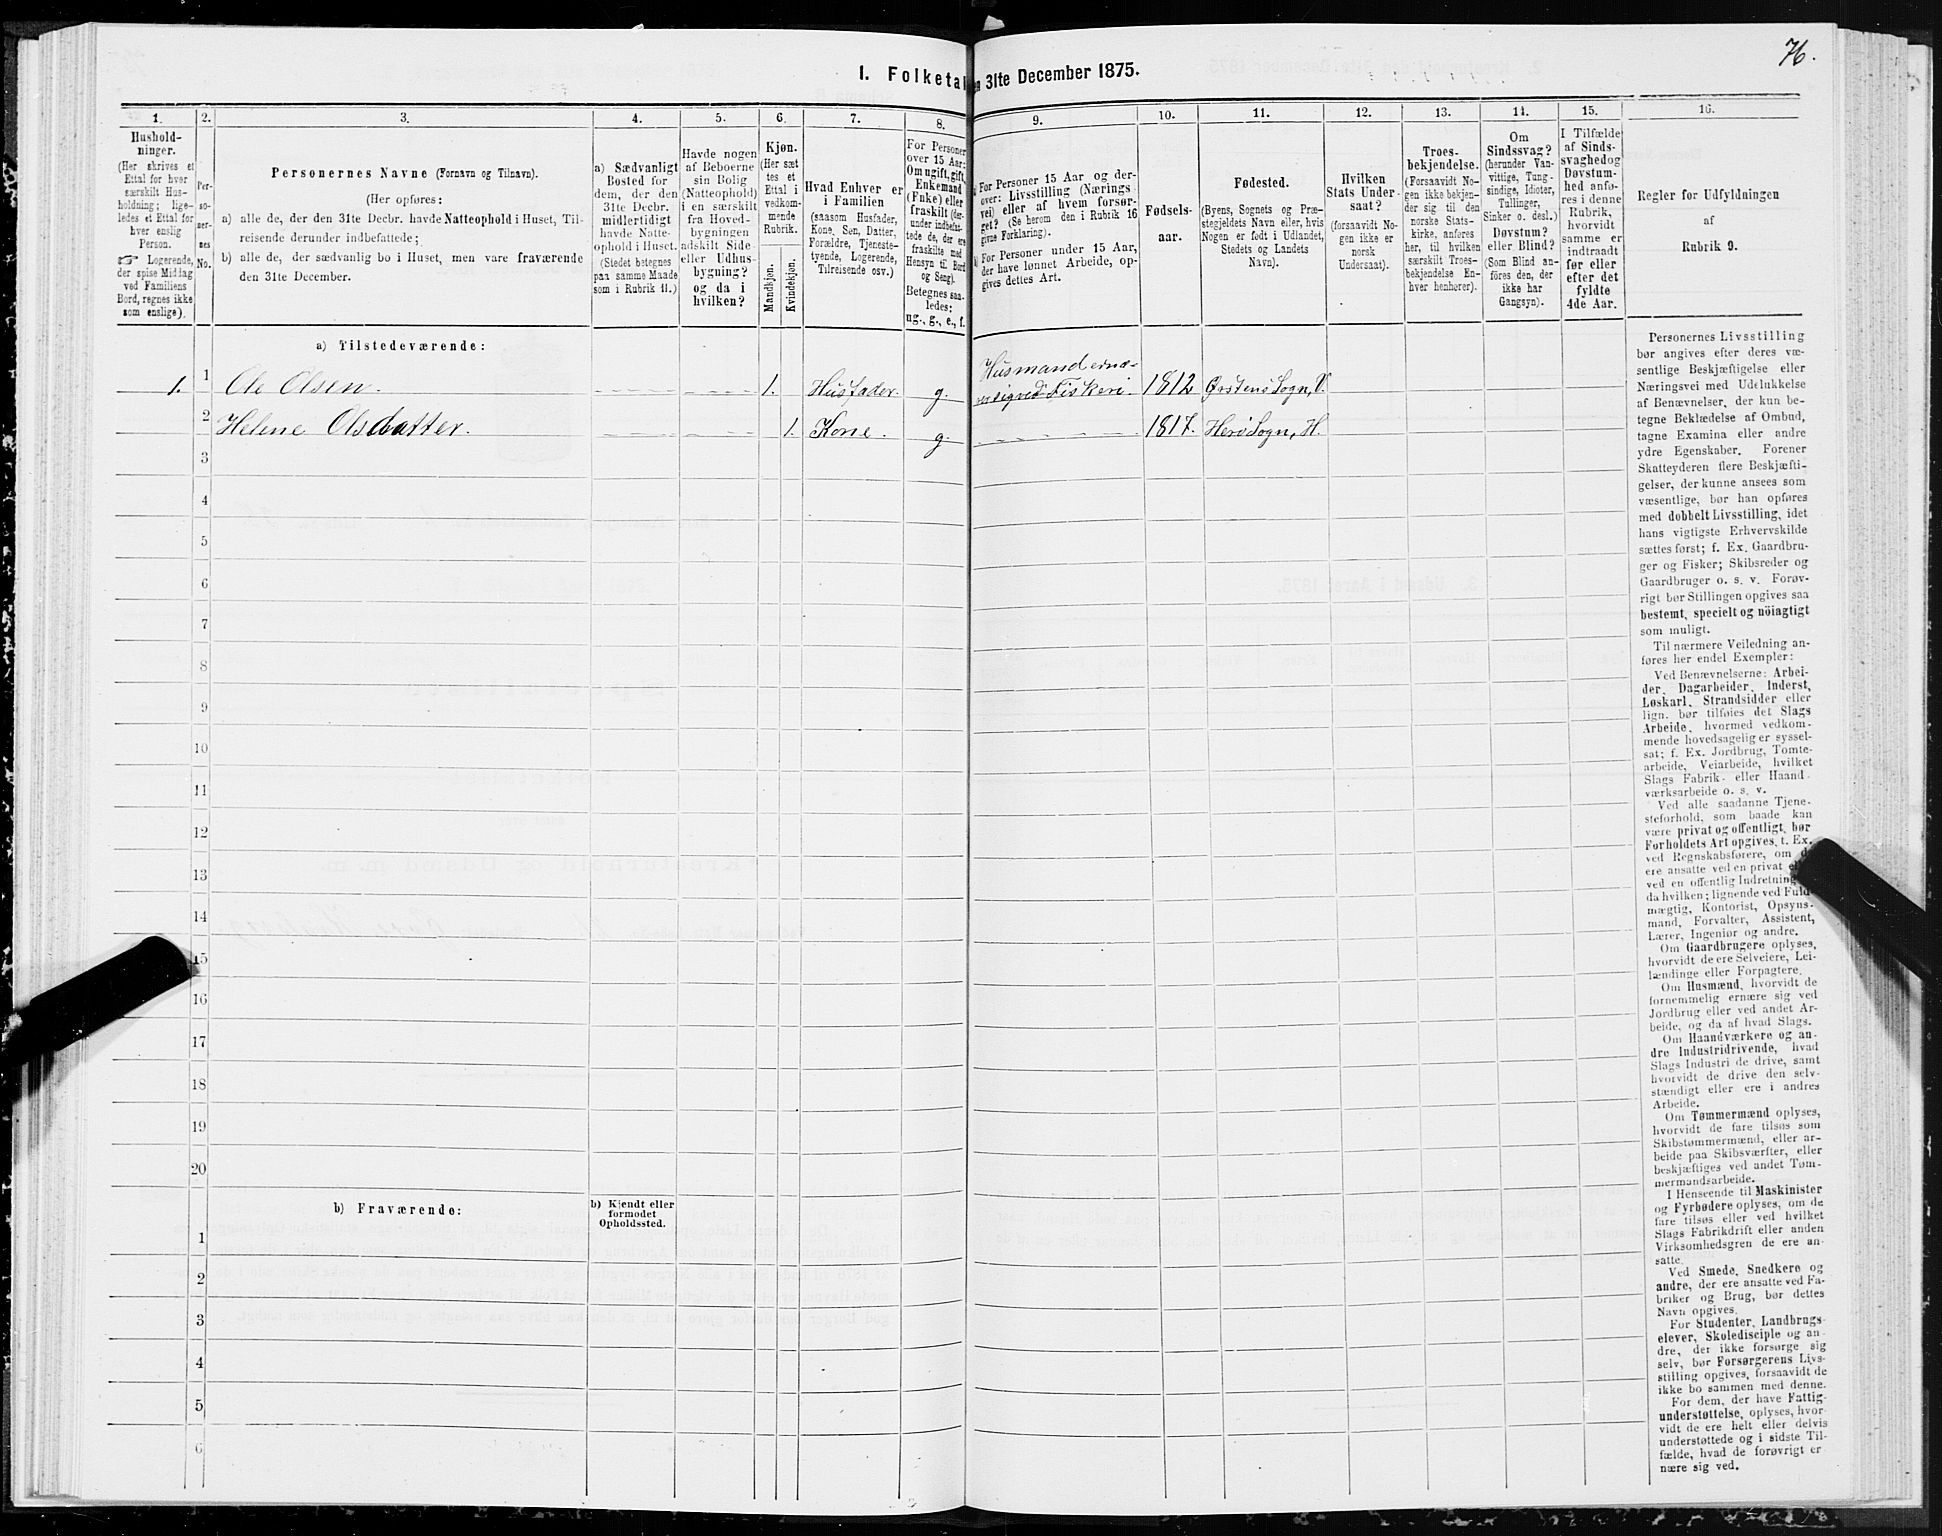 76.
1. Folketal
en 31te December 1875.
1.
Hushold-
ninger.
(Her skrives et
Ettal for hver
særskilt Hus-
holdning; lige-
ledes et Ettal for
hver enslig
Person.
☞ Logerende,
der spise Middag
ved Familiens
Bord, regnes ikke
som enslige).
2.
Per-
so-
ner-
nes
No.
3.
Personernes Navne (Fornavn og Tilnavn).
(Her opføres:
a) alle de, der den 31te Decbr. havde Natteophold i Huset, Til-
reisende derunder indbefattede;
b) alle de, der sædvanlig bo i Huset, men vare fraværende
den 31te December.
4.
a) Sædvanligt
Bosted for
dem, der den
31te Decbr.
midlertidigt
havde Natte-
ophold i Huset.
(Stedet betegnes
paa samme Maade
som i Rubrik 11.)
5.
Havde nogen
af Beboerne
sin Bolig
(Natteophold)
i en særskilt
fra Hoved-
bygningen
adskilt Side-
eller Udhus-
bygning?
og da i
hvilken?
6.
Kjøn.
(Her sæt-
tes et
Ettal i
vedkom-
mende
Rubrik.
Mandkjøn.
Kvindekjøn.
7.
Hvad Enhver er
i Familien
(saasom Husfader,
Kone, Søn, Datter,
Forældre, Tjeneste-
tyende, Logerende,
Tilreisende osv.)
8.
For Personer
over 15 Aar:
Om ugift, gift,
Enkemand
(Enke) eller
fraskilt (der-
under indbefat-
tede de, der ere
fraskilte med
Hensyn til Bord
og Seng).
Betegnes saa-
ledes:
ug., g., e., f.
9.
a) For Personer 15 Aar og der-
over: Livsstilling (Nærings-
vei) eller af hvem forsør-
get? (Se herom den i Rubrik 16
givne Forklaring).
b) For Personer under 15 Aar,
der have lønnet Arbeide, op-
gives dettes Art.
10.
Fødsels-
aar.
11.
Fødested.
(Byens, Sognets og Præ-
stegjeldets Navn eller, hvis
Nogen er født i Udlandet,
Stedets og Landets
Navn).
12.
Hvilken
Stats Under-
saat?
(forsaavidt No-
gen ikke er
norsk
Undersaat).
13.
Troes-
bekjendelse.
(Forsaavidt No-
gen ikke bekjen-
der sig til den
norske Stats-
kirke, anføres
her, til hvilken
særskilt Troes-
bekjendelse En-
hver henhører).
14.
Om
Sindssvag?
(herunder Van-
vittige, Tung-
sindige, Idioter,
Tullinger,
Sinker o. desl.)
Døvstum?
eller Blind?
(Som Blind an-
føres den, der
ikke har
Gangsyn).
15.
I Tilfælde
af Sinds-
svaghed og
Døvstum-
hed anfø-
res i denne
Rubrik,
hvorvidt
samme er
indtraadt
før eller
efter det
fyldte
4de Aar.
16.
Regler for Udfyldningen
af
Rubrik 9.
a) Tilstedeværende:
1. 1 Ole Olsen. 1. Husfader. g. Husmand ernæ-
rer sig ved Fiskeri. 1812 Ørstens Sogn, V.
2 Helene Olsdatter. 1. Kone. g. 1817. Herö Sogn, H.
3
4
5
6
7
8
9
10
11
12
13
14
15
16
17
18
19
20
b) Fraværende:
b) Kjendt eller
formodet
Opholdssted.
1
2
3
4
5
6
Personernes Livsstilling
bør angives efter deres væ-
sentlige Beskjæftigelse eller
Næringsvei med Udelukkelse
af Benævnelser, der kun be-
tegne Beklædelse af Ombud,
tagne Examina eller andre
ydre Egenskaber. Forener
Skatteyderen flere Beskjæfti-
gelser, der kunne ansees som
væsentlige, bør han opføres
med dobbelt Livsstilling, idet
hans vigtigste Erhvervskilde
sættes først; f. Ex. Gaardbru-
ger og Fisker; Skibsreder og
Gaardbruger o. s. v. Forøv-
rigt bør Stillingen opgives saa
bestemt, specielt og nöiagtigt
som muligt.
Til nærmere Veiledning an-
føres her endel Exempler:
Ved Benævnelserne: Arbei-
der, Dagarbeider, Inderst,
Løskarl, Strandsidder eller
lign. bør tilføies det Slags
Arbeide, hvormed vedkom-
mende hovedsagelig er syssel-
sat; f. Ex. Jordbrug, Tomte-
arbeide, Veiarbeide, hvilket
Slags Fabrik- eller Haand-
værksarbeide o. s. v.
Ved alle saadanne Tjene-
steforhold, som baade kan
være privat og offentligt, bør
Forholdets Art opgives, t. Ex.
ved Regnskabsførere, om de
ere ansatte ved en privat eller
ved en offentlig Indretning,
da hvilken; lignende ved Fuld-
mægtig, Kontorist, Opsyns-
mand, Forvalter, Assistent,
Lærer, Ingeniør og andre.
Om Gaardbrugere oplyses,
hvorvidt de ere Selveiere, Lei-
lændinge eller Forpagtere.
Om Husmænd, hvorvidt de
fornemmelig ernære sig ved
Jordbrug eller ved andet Ar-
beide, og da af hvad Slags.
Om Haandværkere og an-
dre Industridrivende, hvad
Slags Industri de drive, samt
hvorvidt de drive den selv-
stændigt eller ere i andres
Arbeide.
Om Tømmermænd oplyses,
hvorvidt de fare tilsøs som
Skibstømmermænd, eller ar-
beide paa Skibsværfter, eller
beskjæftiges ved andet Tøm-
mermandsarbeide.
I Henseende til Maskinister
og Fyrbødere oplyses, om de
fare tilsøs eller ved hvilket
Slags Fabrikdrift eller anden
Virksomhedsgren de ere an-
satte.
Ved Smede, Snedkere og
andre, der ere ansatte ved Fa-
briker og Brug, bør dettes
Navn opgives.
For Studenter, Landbrugs-
elever, Skoledisciple og an-
dre, der ikke forsørge sig
selv, bør Forsørgerens Livs-
stilling opgives, forsaavidt de
ikke bo sammen med denne.
For dem, der have Fattig-
understøttelse, oplyses, hvor-
vidt de ere helt eller delvis
understøttede og i sidste Til-
fælde, hvad de forøvrigt er-
nære sig ved.